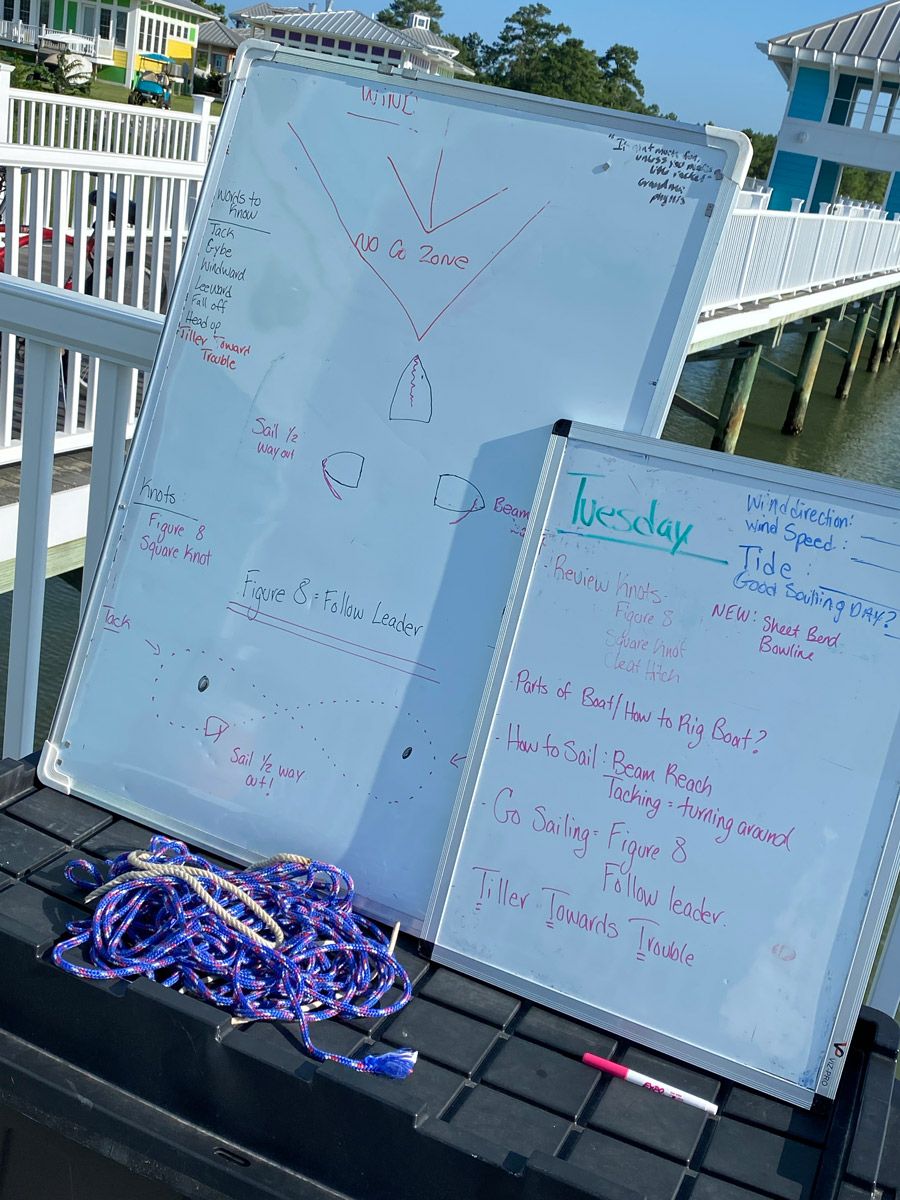 WIND
"It ain't much fun,
unless you
like
Grandma
NO GO ZONE
Words to
Know
Tack
Gybe
Windward
Leeward
Fall off
Head up
Tiller Toward
Trouble
Sail 1/2
way out
Beam
Knots:
Figure 8
Square Knot
Figure 8 = Follow Leader
Tack
Sail 1/2 way
out!
Tuesday
Wind direction:
Wind Speed:
Tide:
Good Sailing DAY?
- Review Knots-
Figure 8
Square Knot
Cleat Hitch
NEW: Sheet Bend
Bowline
- Parts of Boat/How to Rig Boat?
- How to Sail: Beam Reach
Tacking = turning around
- Go Sailing = Figure 8
Follow leader.
Tiller Towards Trouble
VIZ-PRO
EXPO